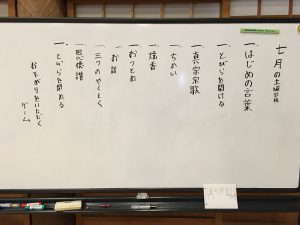 七月の土曜学校
一、はじめの言葉
一、とびらを開ける
一、真宗宗歌
一、ちかい
一、焼香
一、おつとめ
一、お話
一、三つのやくそく
一、恩徳讃
一、とびらを閉める
おさがりをいただく
ゲーム